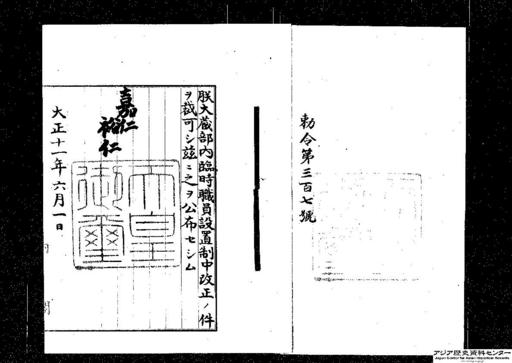 勅令第三百七號
朕大蔵部内臨時職員設置制中改正ノ件
ヲ裁可シ茲ニ之ヲ公布セシム
嘉仁
裕仁
天皇
御璽
大正十一年六月一日
アジア歴史資料センター
Japan Center for Asian Historical Records